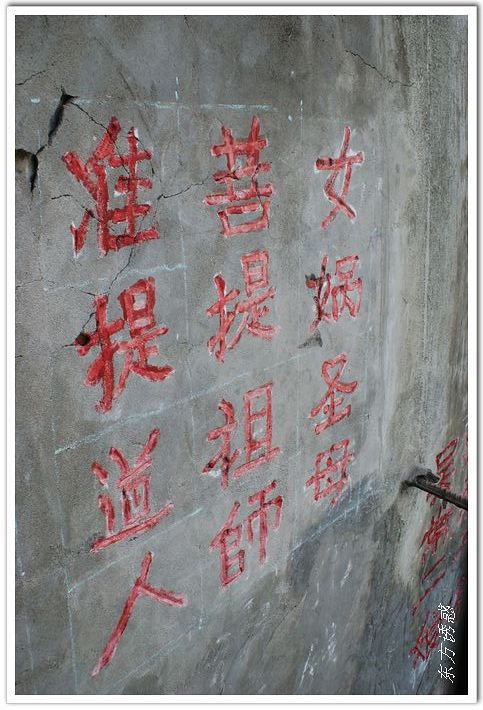 女娲圣母
菩提祖師
准提道人
东方诱惑